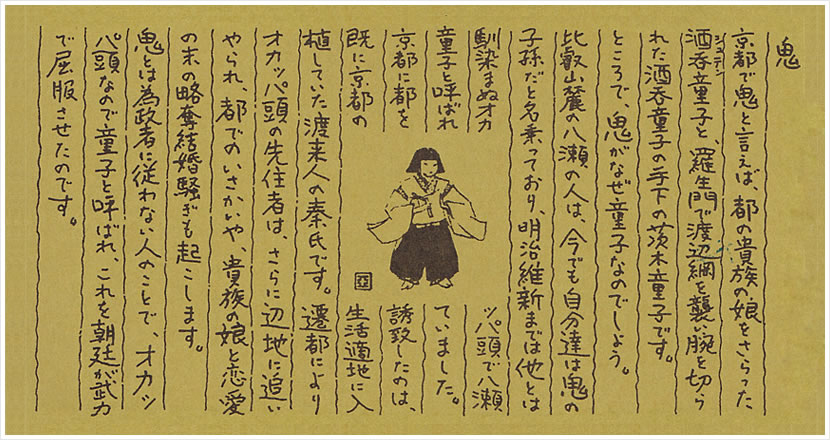 鬼
京都で鬼と言えば、都の貴族の娘をさらった
シュテン
酒呑童子と、羅生門で渡辺綱を襲い腕を切ら
れた酒呑童子の手下の茨木童子です。
ところで、鬼がなぜ童子なのでしょう。
比叡山麓の八瀬の人は、今でも自分達は鬼の
子孫だと名乗っており、明治維新までは他とは
馴染まぬオカッパ頭で八瀬
童子と呼ばれていました。
京都に都を誘致したのは、
既に京都の生活適地に入
植していた渡来人の秦氏です。遷都により
オカッパ頭の先住者は、さらに辺地に追い
やられ、都でのいさかいや、貴族の娘と恋愛
の末の略奪結婚騒ぎも起こします。
鬼とは為政者に従わない人のことで、オカッ
パ頭なので童子と呼ばれ、これを朝廷が武力
で屈服させたのです。